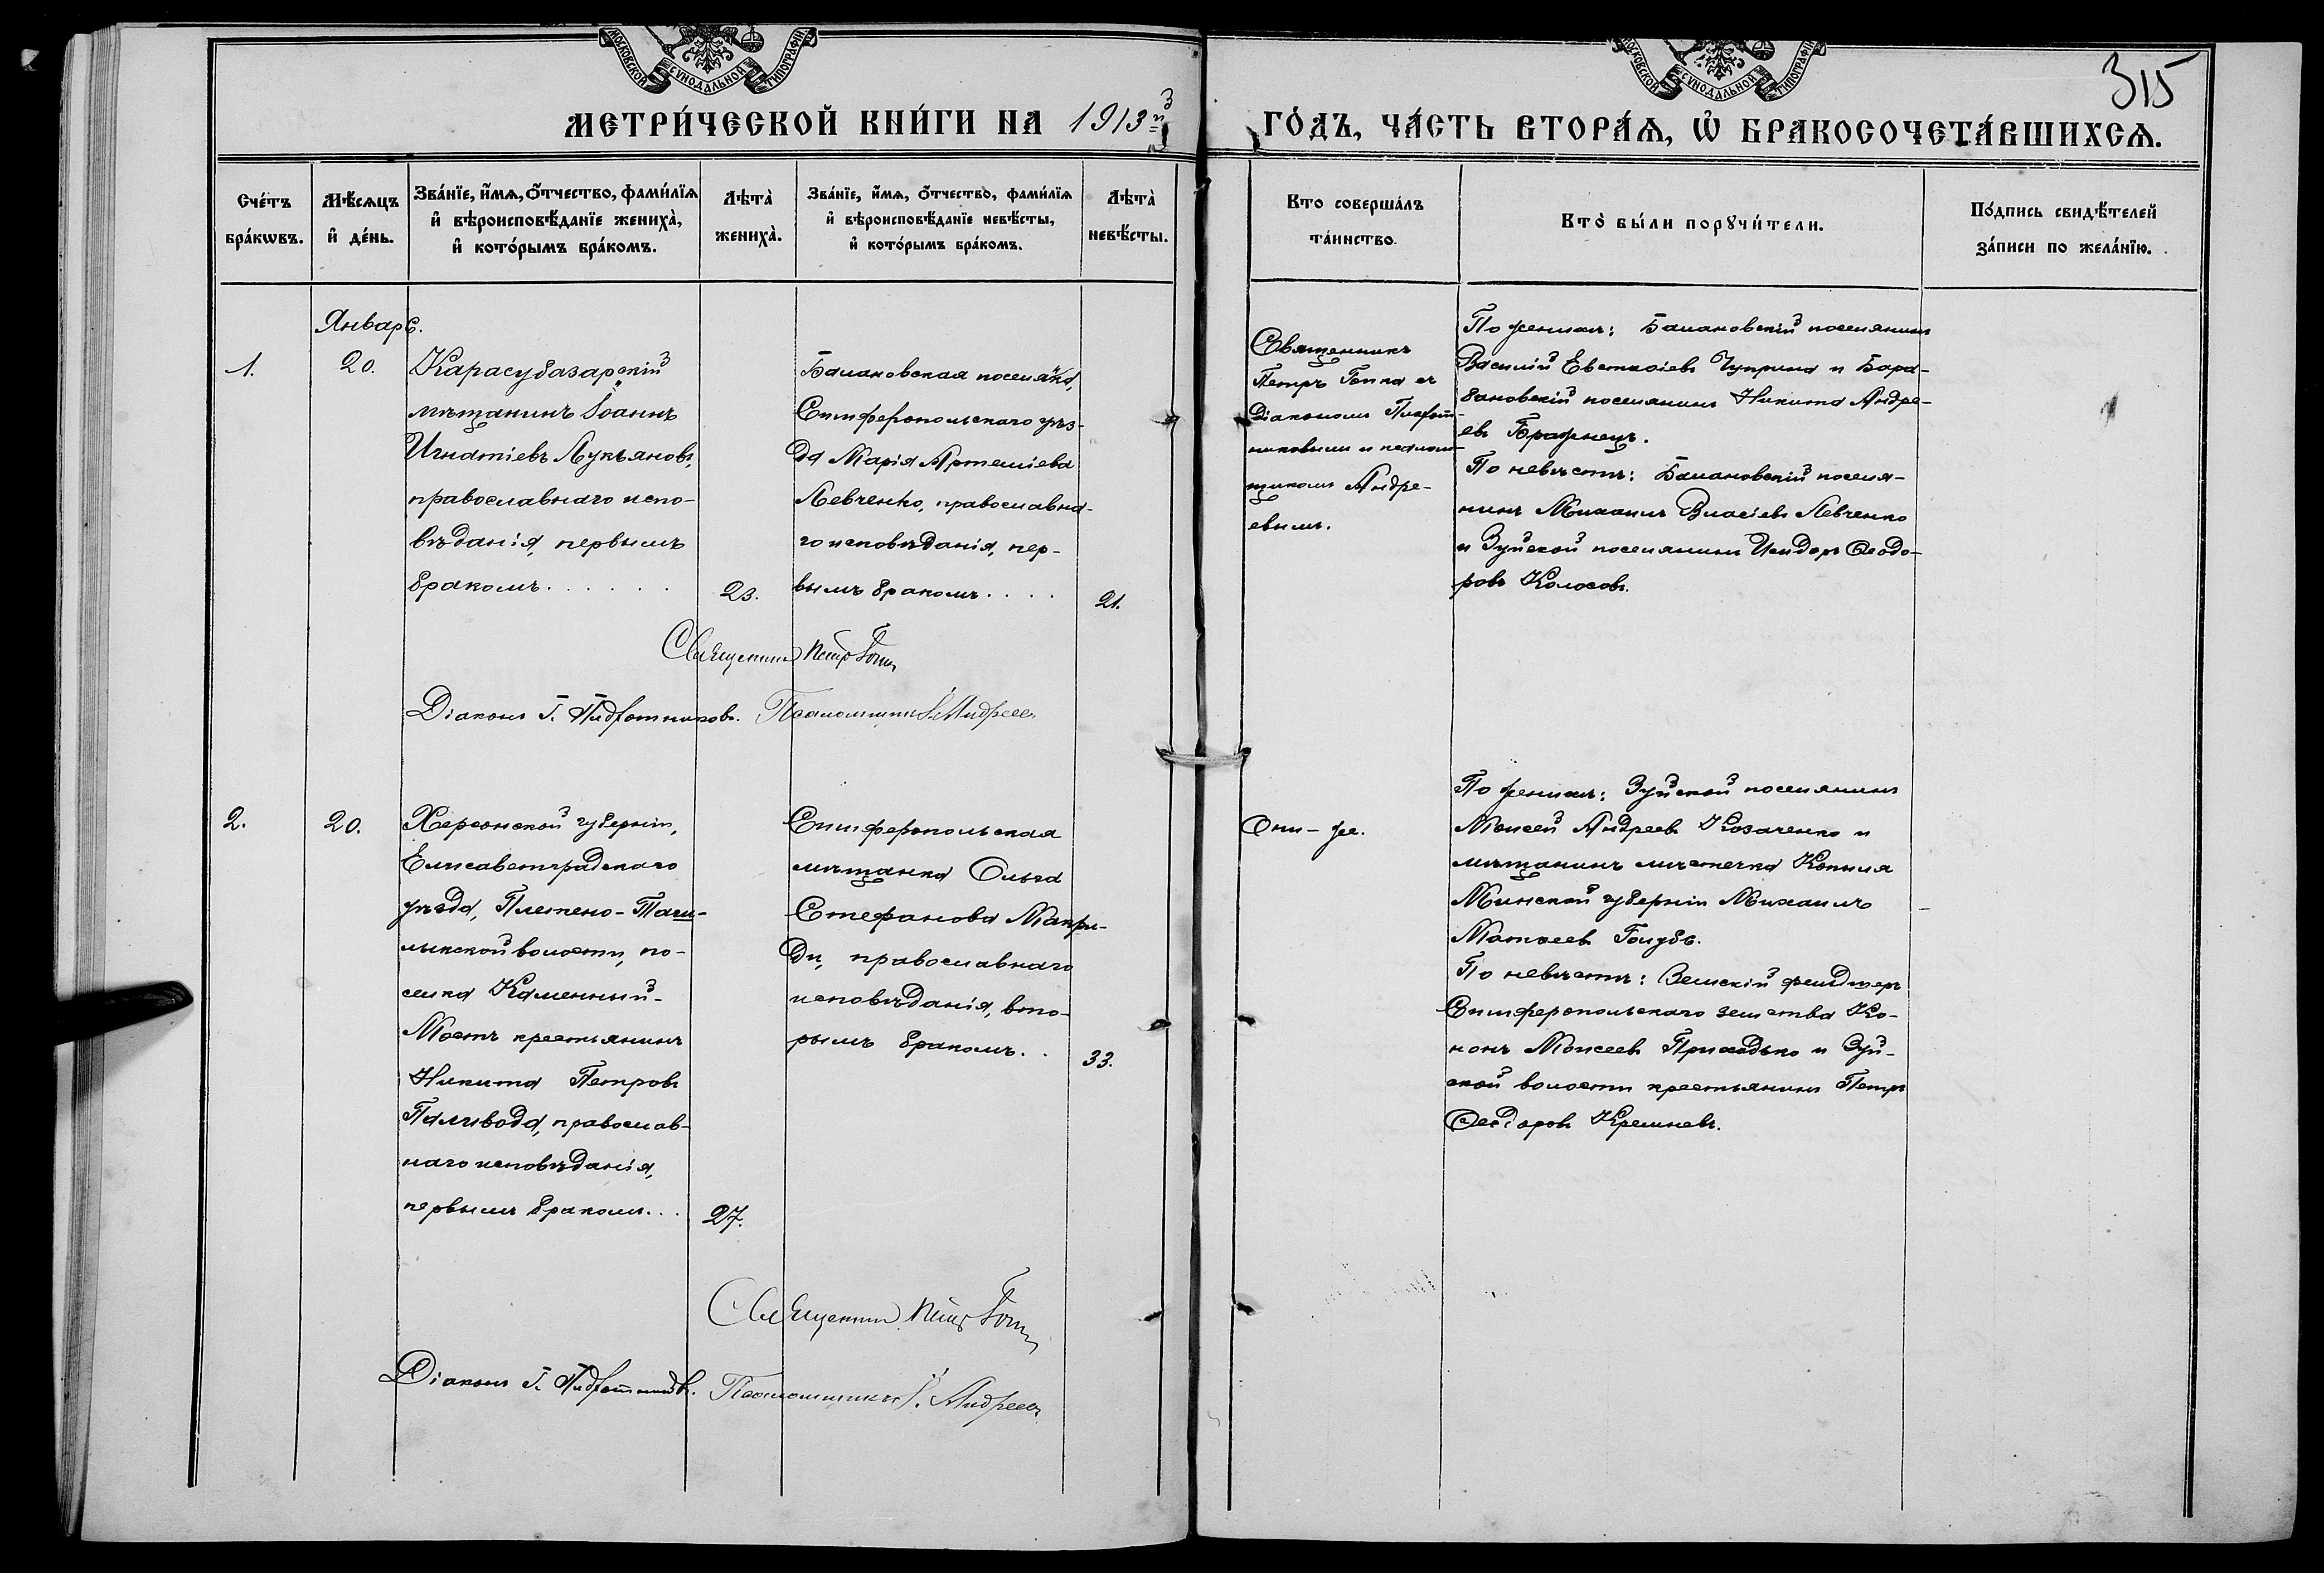 МОСКОВСКОЙ СѴНОДАЛЬНОЙ ТИПОГРАФІИ
МОСКОВСКОЙ СѴНОДАЛЬНОЙ ТИПОГРАФІИ
315
МЕТРИ́ЧЕСКОЙ КНИ́ГИ НА 1913й
ГО́ДЪ, ЧА́СТЬ ВТОРА́Ѧ, Ѡ҆ БРАКОСОЧЕТА́ВШИХСѦ.
Сче́тъ бра́кѡвъ.
Мѣ́сѧцъ и҆ де́нь.
Зва́нїе, и҆́мѧ, ѻ҆́тчество, фами́лїѧ и҆ вѣроисповѣ́данїе жениха̀, и҆ кото́рымъ бра́комъ.
Лѣта̀ жениха̀.
Зва́нїе, и҆́мѧ, ѻ҆́тчество, фами́лїѧ и҆ вѣроисповѣ́данїе невѣ́сты, и҆ кото́рымъ бра́комъ.
Лѣта̀ невѣ́сты.
Кто соверша́лъ та́инство.
Кто̀ бы́ли порꙋчи́тели.
По́дпись свидѣ́телей за́писи по жела́нїю.
Январь.
1.
20.
Карасубазарскій
мѣщанинъ Іоаннъ
Игнатіевъ Лукъяновъ,
православнаго испо-
вѣданія, первымъ
бракомъ . . . . . .
23.
Балановская поселянка,
Симферопольскаго уѣз-
да Марія Артеміева
Левченко, православна-
го исповѣданія, пер-
вымъ бракомъ . . . .
21.
Священникъ
Петръ Гепка съ
Діакономъ
никовымъ и псалом-
щикомъ Андре-
евымъ.
По женихѣ: Балановскій поселянинъ
Василій Чуприна и Бара-
бановскій поселянинъ Никита Андре-
евъ Браженецъ.
По невѣстѣ: Балановскій поселя-
нинъ Михаилъ Власіевъ Левченко
и Зуйской поселянинъ Исидоръ Ѳеодо-
ровъ Колосовъ.
Священникъ Петръ
Діаконъ Г. Псаломщикъ І. Андреевъ
2.
20.
Херсонской губерніи,
Елисаветградскаго
уѣзда, Плетено-Таш-
лыкской волости, по-
селка Каменный-
Мостъ крестьянинъ
Никита Петровъ
Паливода, православ-
наго исповѣданія,
первымъ бракомъ . . .
27.
Симферопольская
мѣщанка Ольга
Стефанова Макри-
ди, православнаго
исповѣданія, вто-
рымъ бракомъ . .
33.
Они-же.
По женихѣ: Зуйской поселянинъ
Моисей Андреевъ Козаченко и
мѣщанинъ мѣстечка Копыля
Минской губерніи Михаилъ
Матвеевъ Голубь.
По невѣстѣ: Земскій фельдшеръ
Симферопольскаго земства Ко-
нонъ Моисеевъ Приходько и Зуй-
ской волости крестьянинъ Петръ
Ѳеодоровъ Кремневъ.
Священникъ Петръ
Діаконъ Г. Псаломщикъ І. Андреевъ